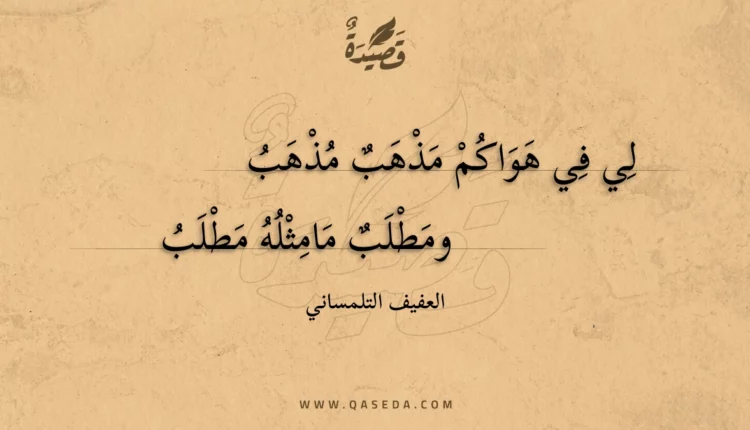 قَصِيدَةٌ
لِي فِي هَوَاكُمْ مَذْهَبٌ مُذْهَبُ
ومَطْلَبٌ مَامِثْلُهُ مَطْلَبُ
العفيف التلمساني
WWW.QASEDA.COM